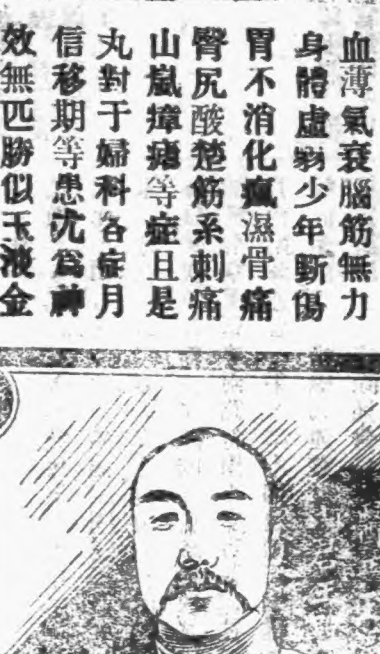 血薄氣衰腦筋無力
身體虛弱少年斲傷
胃不消化瘋濕骨痛
腎尻酸楚筋系刺痛
山嵐瘴瘧等症且是
丸對于婦科各症月
信移期等患尤爲神
效無匹勝似玉液金